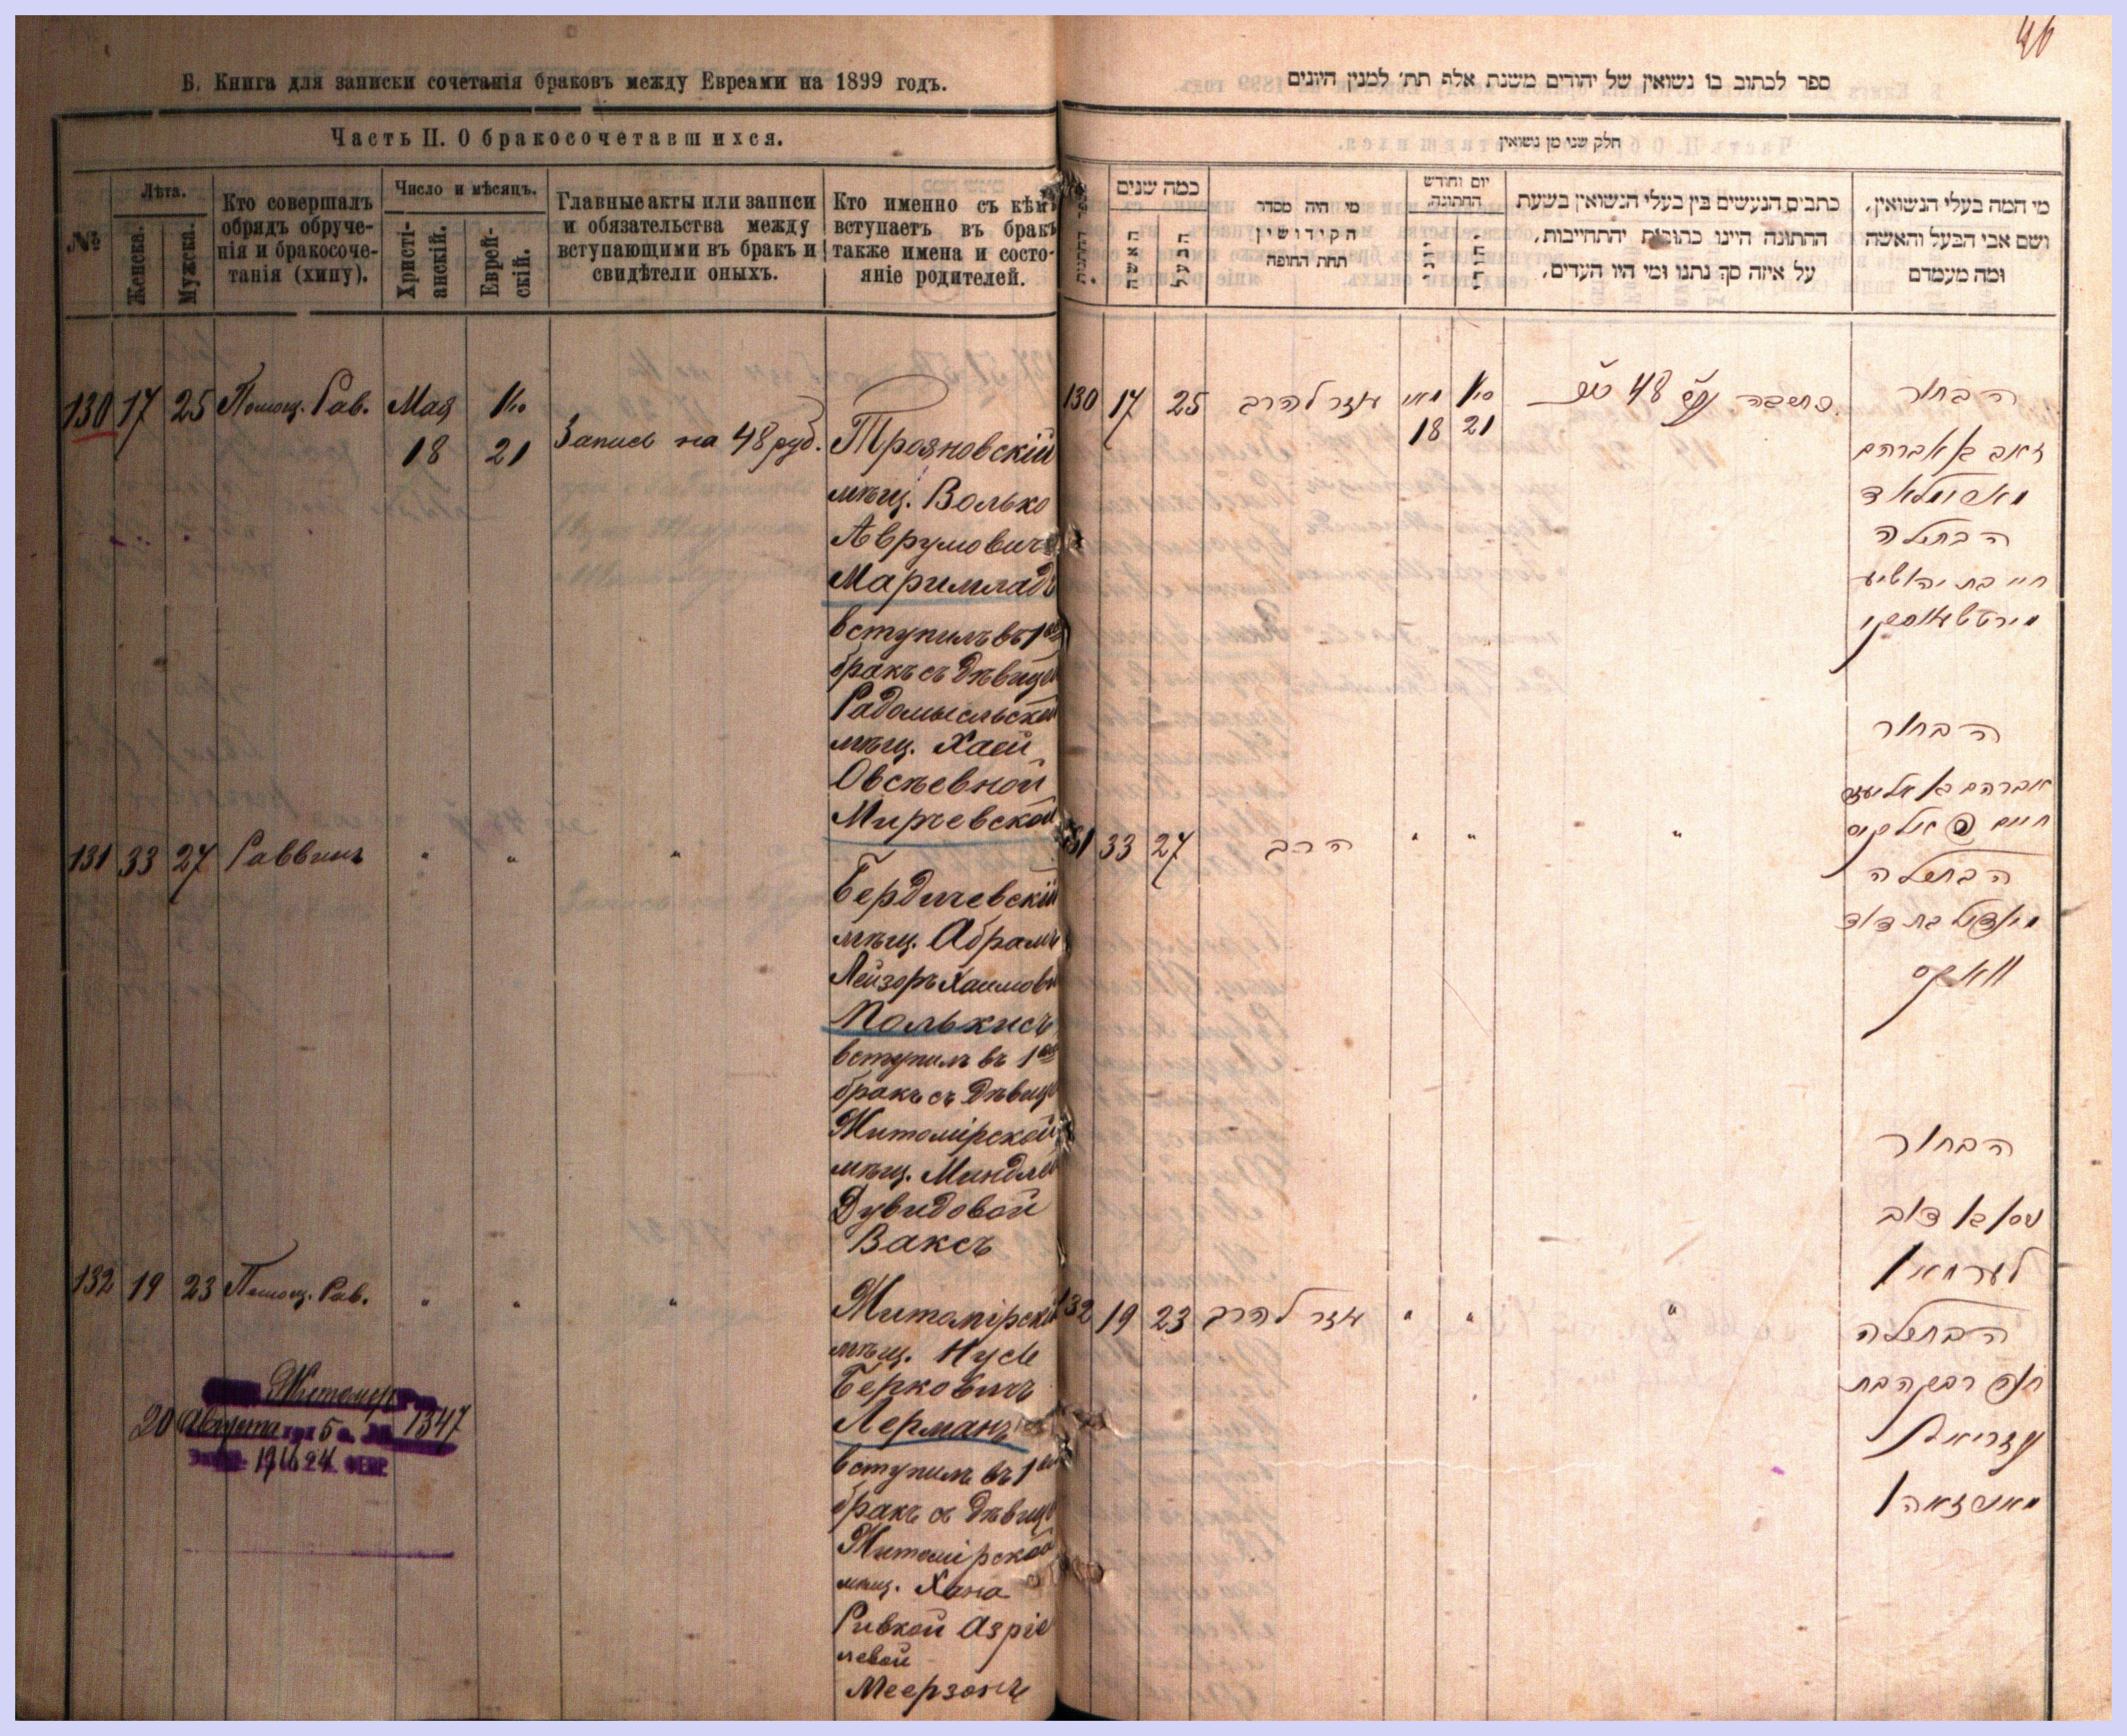 46
Б. Книга для записки сочетанія браковъ между Евреами на 1899 годъ.
Часть II. О бракосочетавшихся.
№
Лѣта.
Женска.
Мужска.
Кто совершалъ
обрядъ обруче-
нія и бракосоче-
танія (хипу).
Число и мѣсяцъ.
Христі-
анскій.
Еврей-
скій.
Главные акты или записи
и обязательства между
вступающими въ бракъ и
свидѣтели оныхъ.
Кто именно съ кѣмъ
вступаетъ въ бракъ
также имена и состо-
яніе родителей.
130 17 25 Помощ. Рав. Мая
18 21
Запись на 48 руб.
Трояновскій
мѣщ. Волько
Аврумовичъ
Маримладъ
вступилъ въ 1ый
бракъ съ дѣвицей
Радомысльской
мѣщ. Хаей
Овсѣевной
Мирчевской
131 33 27 Раввинъ " " "
Бердичевскій
мѣщ. Абрамъ
Лейзоръ Хаимов
Полькисъ
вступилъ въ 1ый
бракъ съ дѣвице
Житомірской
мѣщ. Миндлей
Дувидовой
Ваксъ
132 19 23 Помощ. Рав. " " "
Житомірскій
мѣщ. Нусь
Берковичъ
Лерманъ
вступилъ въ 1ый
бракъ съ дѣвице
Житомірской
мѣщ. Хана
Ривкой Азріе
левой
Меерзонъ
Житомир
20 Августа 5 1347
1916 24
ספר לכתוב בו נשואין של יהודים משנת אלף תת׳ למנין היונים
חלק שני מן נשואין
כמה שנים
האשה
הבעל
מי היה מסדר
הקידושין
תחת החופה
יום וחודש
החתונה
כתבים הנעשים בין בעלי הנשואין בשעת
החתונה היינו כתובות והתחייבות,
על איזה סך נתנו ומי היו העדים.
מי המה בעלי הנשואין,
ושם אבי הבעל והאשה
ומה מעמדם
130 17 25 עוזר להרב מאי
18 21
48
הבחור
זאב בן אברהם
הבתולה
חיי בת יהושיע
הבחור
אברהם אליעזר
חיים
131 33 27 הרב " " "
הבתולה
מינדיל בת דוד
וואקס
הבחור
נוסן בן דוב
לערמאן
132 19 23 עוזר להרב " " "
הבתולה
חנה רבקה בת
עזריאל
מאירזאהן